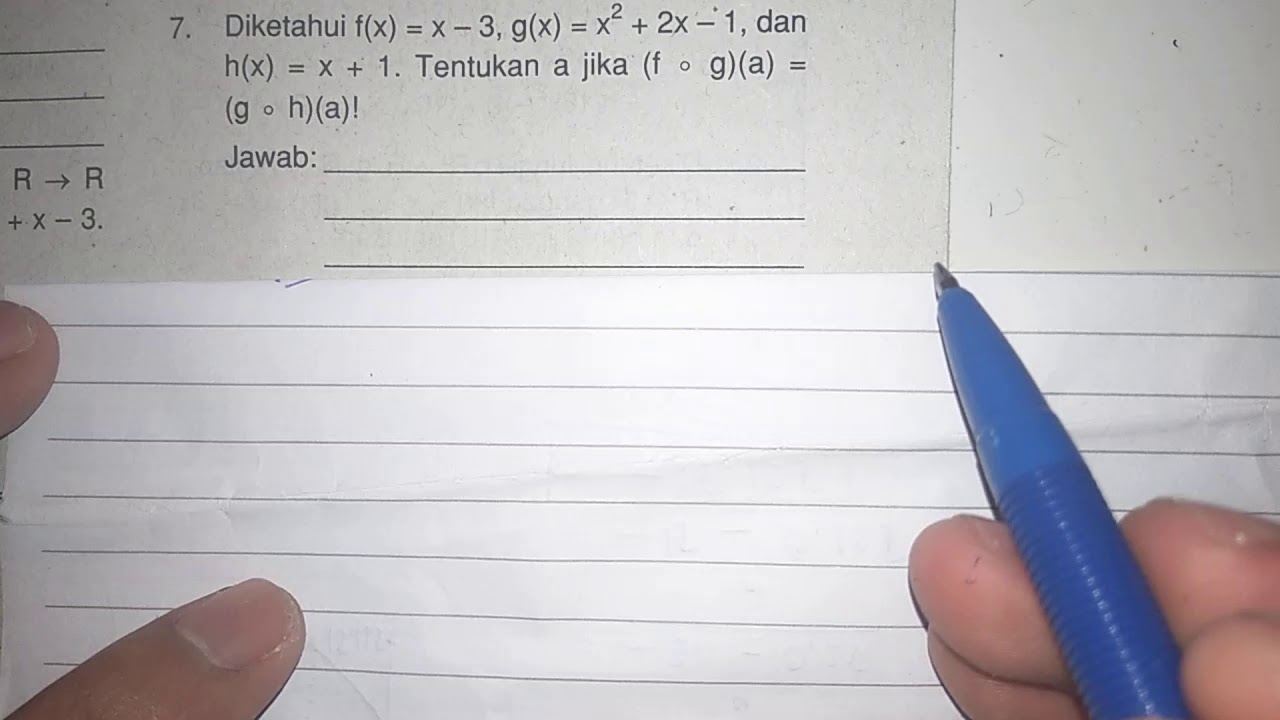 7. Diketahui f(x) = x – 3, g(x) = x² + 2x – 1, dan
h(x) = x + 1. Tentukan a jika (f ∘ g)(a) =
(g ∘ h)(a)!
Jawab:
R → R
+ x – 3.